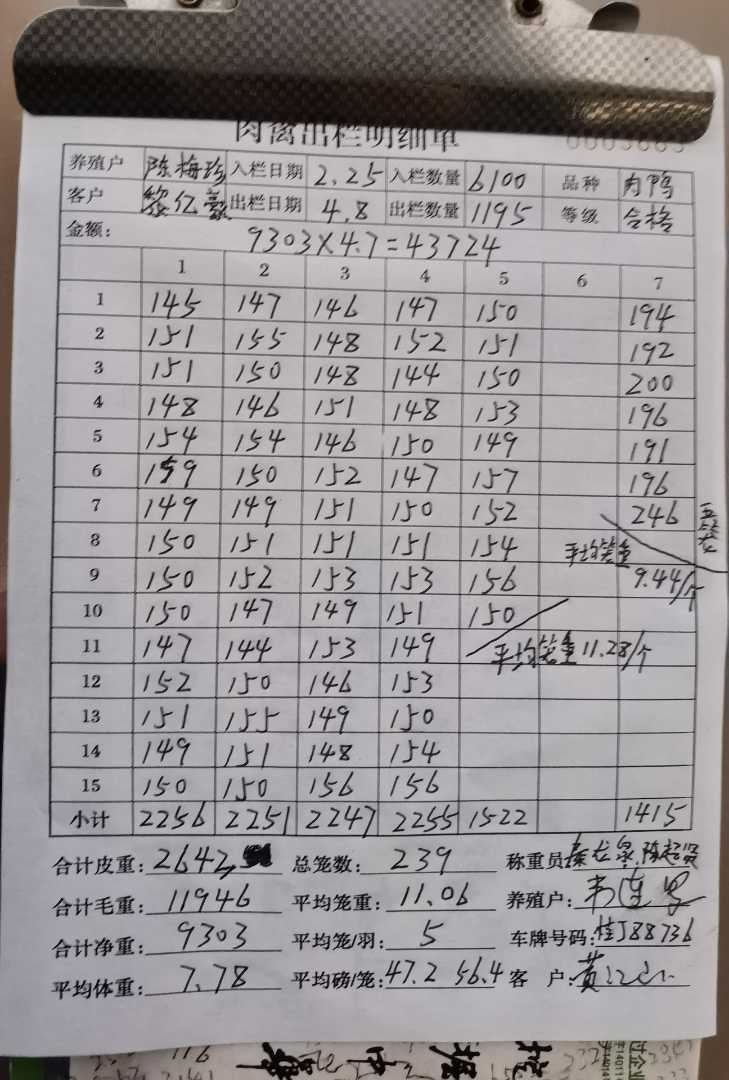 肉禽出栏明细单
养殖户 陈梅珍 入栏日期 2.25 入栏数量 6100 品种 肉鸭
客户 黎亿 出栏日期 4.8 出栏数量 1195 等级 合格
金额: 9303×4.7=43724
1 2 3 4 5 6 7
1 145 147 146 147 150 194
2 151 155 148 152 151 192
3 151 150 148 144 150 200
4 148 146 151 148 153 196
5 154 154 146 150 149 191
6 159 150 152 147 157 196
7 149 149 151 150 152 246
8 150 151 151 151 154 平均笼重
9 150 152 153 153 156 9.44/个
10 150 147 149 151 150
11 147 144 153 149 平均笼重11.28/个
12 152 150 146 153
13 151 155 149 150
14 149 151 148 154
15 150 150 156 156
小计 2256 2251 2247 2255 1522 1415
合计皮重: 2642 总笼数: 239 称重员: 秦龙泉.陈超贤
合计毛重: 11946 平均笼重: 11.06 养殖户:
合计净重: 9303 平均笼/羽: 5 车牌号码: 桂J88736
平均体重: 7.78 平均磅/笼: 47.2 56.4 客 户: 黄